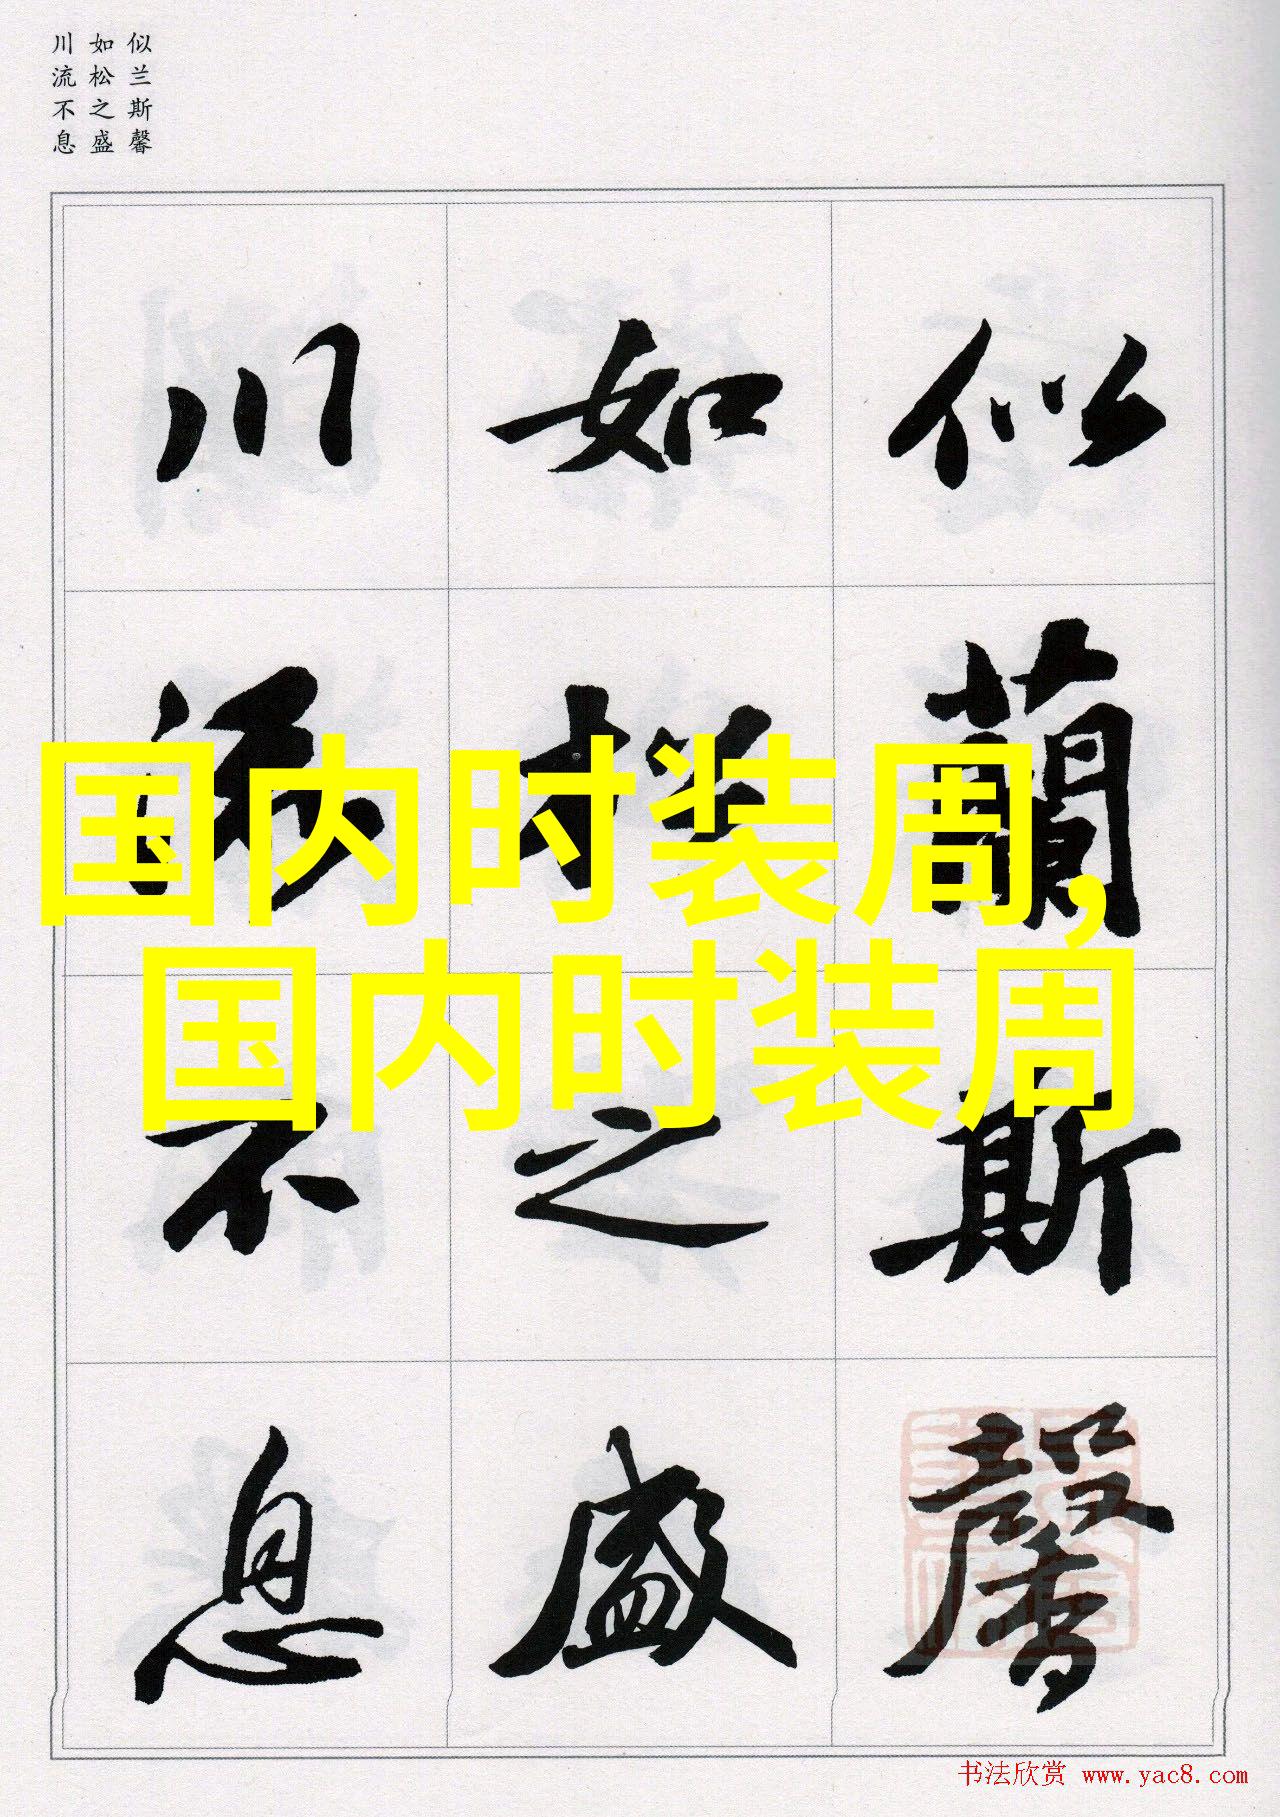 似兰斯馨
如松之盛
川流不息
似蘭斯馨
如松之盛
川流不息
国内时装周,
国内时装周
书法欣赏 www.yac8.com